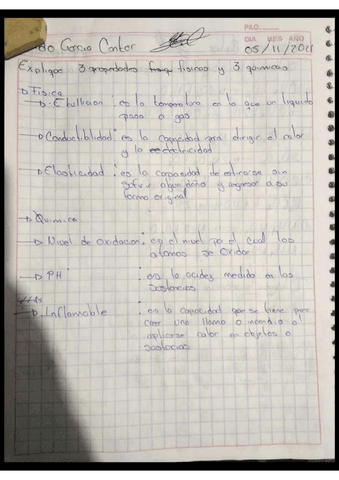 PAG.
DIA MES AÑO
do Garcia Cantor
05/11/2021
Expliqae 3 propiedades fisicas y 3 quimicas
Fisica
Ebullicion: es la temperatura en la que un liquido
pasa a gas
Conductiblidad: es la capacidad para dirigir el calor
y la electricidad
Elasticidad: es la capacidad de estirarse sin
sufrir algun daño y regresar a su
forma original
Quimica
Nivel de oxidacion: es el nivel por el cual los
atomos se oxidan
PH: es la acidez medida en las
sustancias
Inflamable: es la capacidad que se tiene para
crear una llama o incendio al
aplicarse calor en objetos o
sustancias